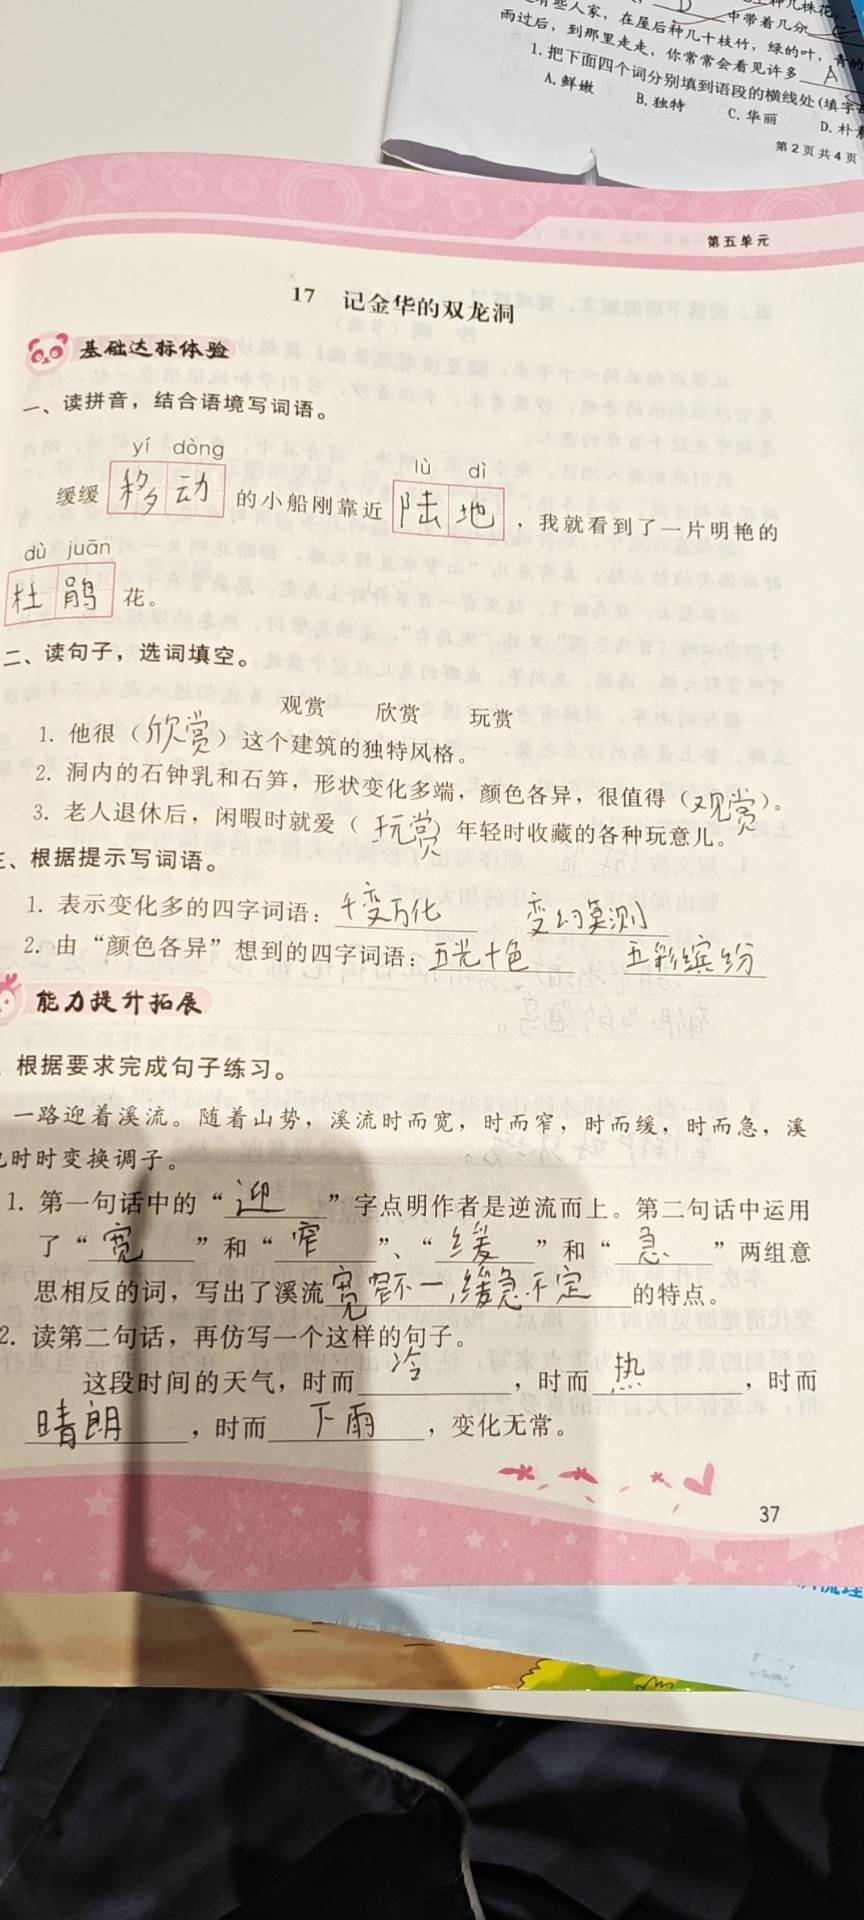 D
中带着几分 C
有些人家，在屋后种几十枝竹，绿的叶，青的
雨过后，到那里走走，你常常会看见许多 A
1. 把下面四个词分别填到语段的横线处(填字
A. 鲜嫩 B. 独特 C. 华丽 D. 朴
第2页共4页
第五单元
17 记金华的双龙洞
基础达标体验
一、读拼音，结合语境写词语。
yí dòng
lù dì
缓缓 移动 的小船刚靠近 陆地 ，我就看到了一片明艳的
dù juān
杜鹃 花。
二、读句子，选词填空。
观赏 欣赏 玩赏
1. 他很（欣赏）这个建筑的独特风格。
2. 洞内的石钟乳和石笋，形状变化多端，颜色各异，很值得（观赏）。
3. 老人退休后，闲暇时就爱（玩赏）年轻时收藏的各种玩意儿。
三、根据提示写词语。
1. 表示变化多的四字词语：千变万化 变幻莫测
2. 由“颜色各异”想到的四字词语：五光十色 五彩缤纷
能力提升拓展
根据要求完成句子练习。
一路迎着溪流。随着山势，溪流时而宽，时而窄，时而缓，时而急，溪
时时变换调子。
1. 第一句话中的“迎”字点明作者是逆流而上。第二句话中运用
了“宽”和“窄”、“缓”和“急”两组意
思相反的词，写出了溪流宽窄不一,缓急不定的特点。
2. 读第二句话，再仿写一个这样的句子。
这段时间的天气，时而冷，时而热，时而
晴朗，时而下雨，变化无常。
37